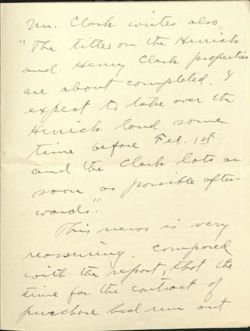 Mr. Clark writes also,
"The titles on the Herrick
and Henry Clark properties
are about completed. I
expect to take over the
Herrick land some
time before Feb. 1st
and the Clark lots as
soon as possible after-
wards."
This news is very
reassuring, compared
with the report, that the
time for the contract of
purchase had run out